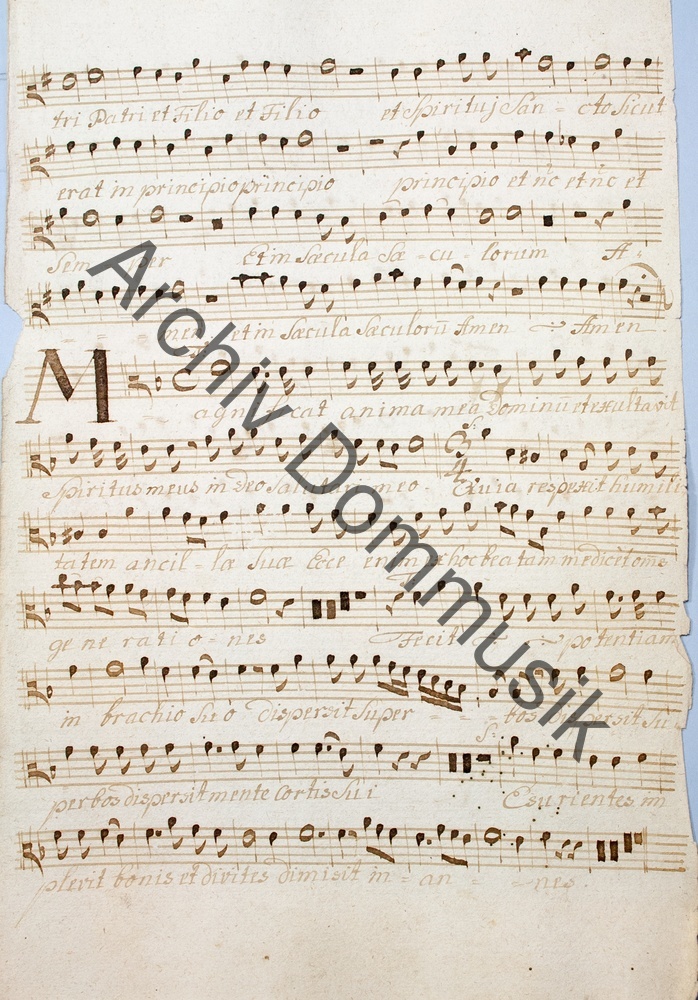 tri Patri et Filio et Filio et Spirituj San - cto Sicut
erat in principio principio principio et nc et nc et
Sem per Et in Sæcula Sæ - cu - lorum A -
men et in Sæcula Sæculorū Amen Amen
Magnificat anima mea Dominū et exultavit
Spiritus meus in deo Salutari meo. Quia respexit humili
3/4
tatem ancil - læ Suæ Ecce enim ex hoc beatam me dicēt om̄e
ge ne rati o - nes Fecit potentiam
in brachio Suo dispersit Super - - - bos dispersit Su
perbos dispersit mente Cortis Sui Esurientes im
plevit bonis et divites dimisit in - an - - nes.
Archiv Dommusik